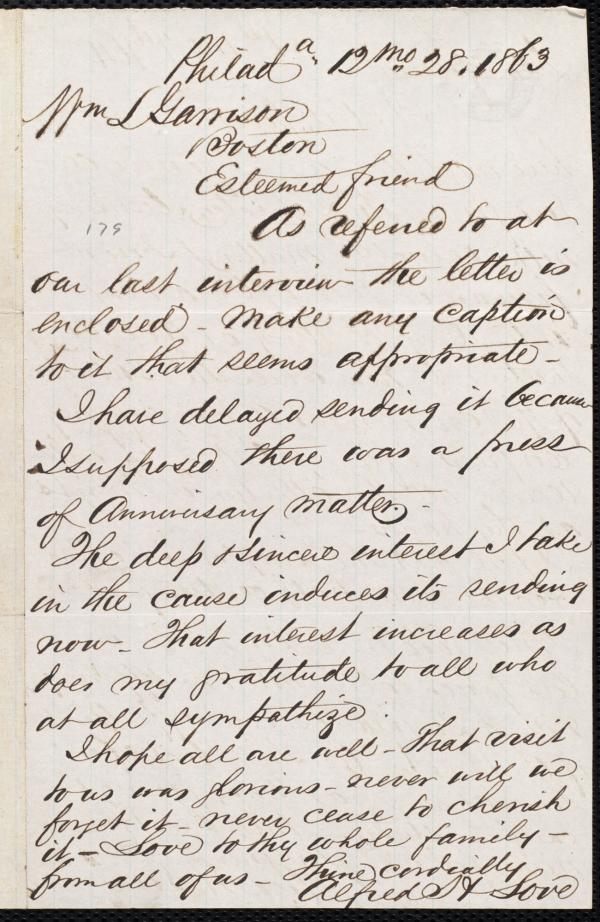 Philad a. 12 mo 28. 1863
Wm L Garrison
Boston
Esteemed friend
179
As referred to at
our last interview the letter is
enclosed - Make any caption
to it that seems appropriate -
I have delayed sending it because
I supposed there was a press
of Anniversary matter. -
The deep & sincere interest I take
in the cause induces its sending
now - That interest increases as
does my gratitude to all who
at all sympathize.
I hope all are well - That visit
to us was glorious - never will we
forget it - never cease to cherish
it - Love to thy whole family -
from all of us - Thine cordially
Alfred H Love